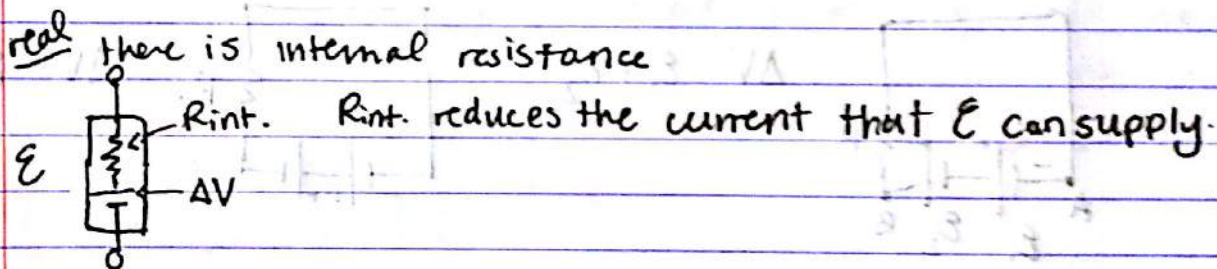 real there is internal resistance
Rint. Rint. reduces the current that ℰ can supply.
ℰ
ΔV